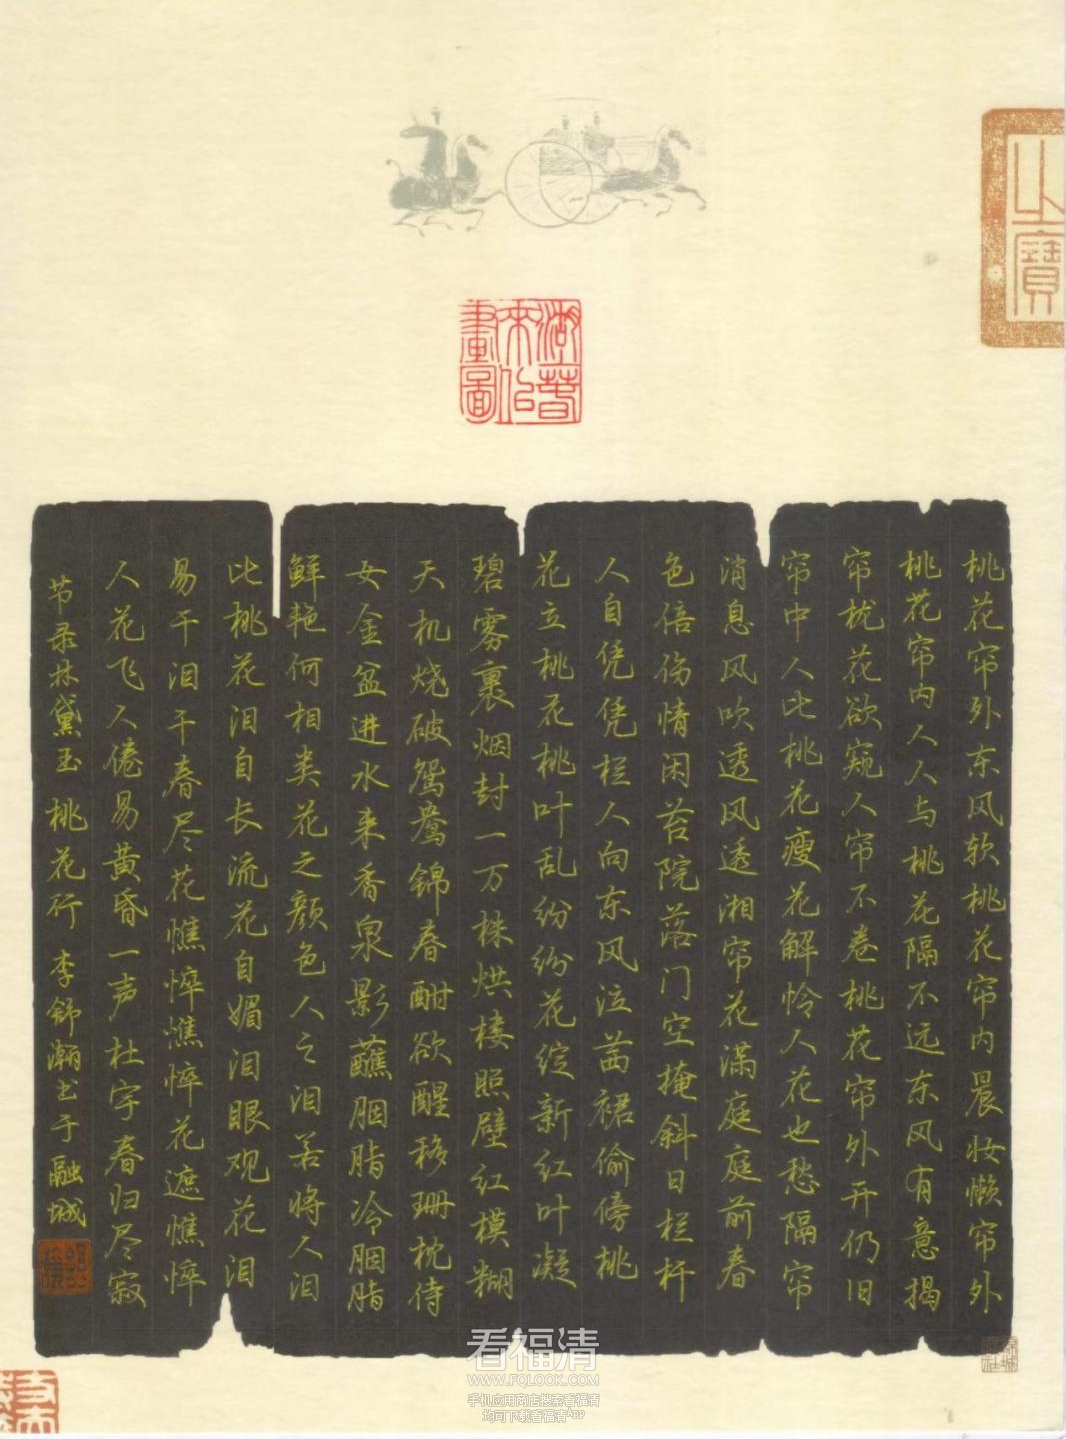 之寶
湖上春來似畫圖
桃花帘外东风软桃花帘内晨妆懒帘外
桃花帘内人人与桃花隔不远东风有意揭
帘栊花欲窥人帘不卷桃花帘外开仍旧
帘中人比桃花瘦花解怜人花也愁隔帘
消息风吹透风透湘帘花满庭庭前春
色倍伤情闲苔院落门空掩斜日栏杆
人自凭凭栏人向东风泣茜裙偷傍桃
花立桃花桃叶乱纷纷花绽新红叶凝
碧雾裹烟封一万株烘楼照壁红模糊
天机烧破鸳鸯锦春酣欲醒移珊枕侍
女金盆进水来香泉影蘸胭脂冷胭脂
鲜艳何相类花之颜色人之泪若将人泪
比桃花泪自长流花自媚泪眼观花泪
易干泪干春尽花憔悴憔悴花遮憔悴
人花飞人倦易黄昏一声杜宇春归尽寂
节录林黛玉桃花行李舒瀚书于融城
看福清
WWW.FQLOOK.COM
手机应用商店搜索看福清
均可下载看福清APP